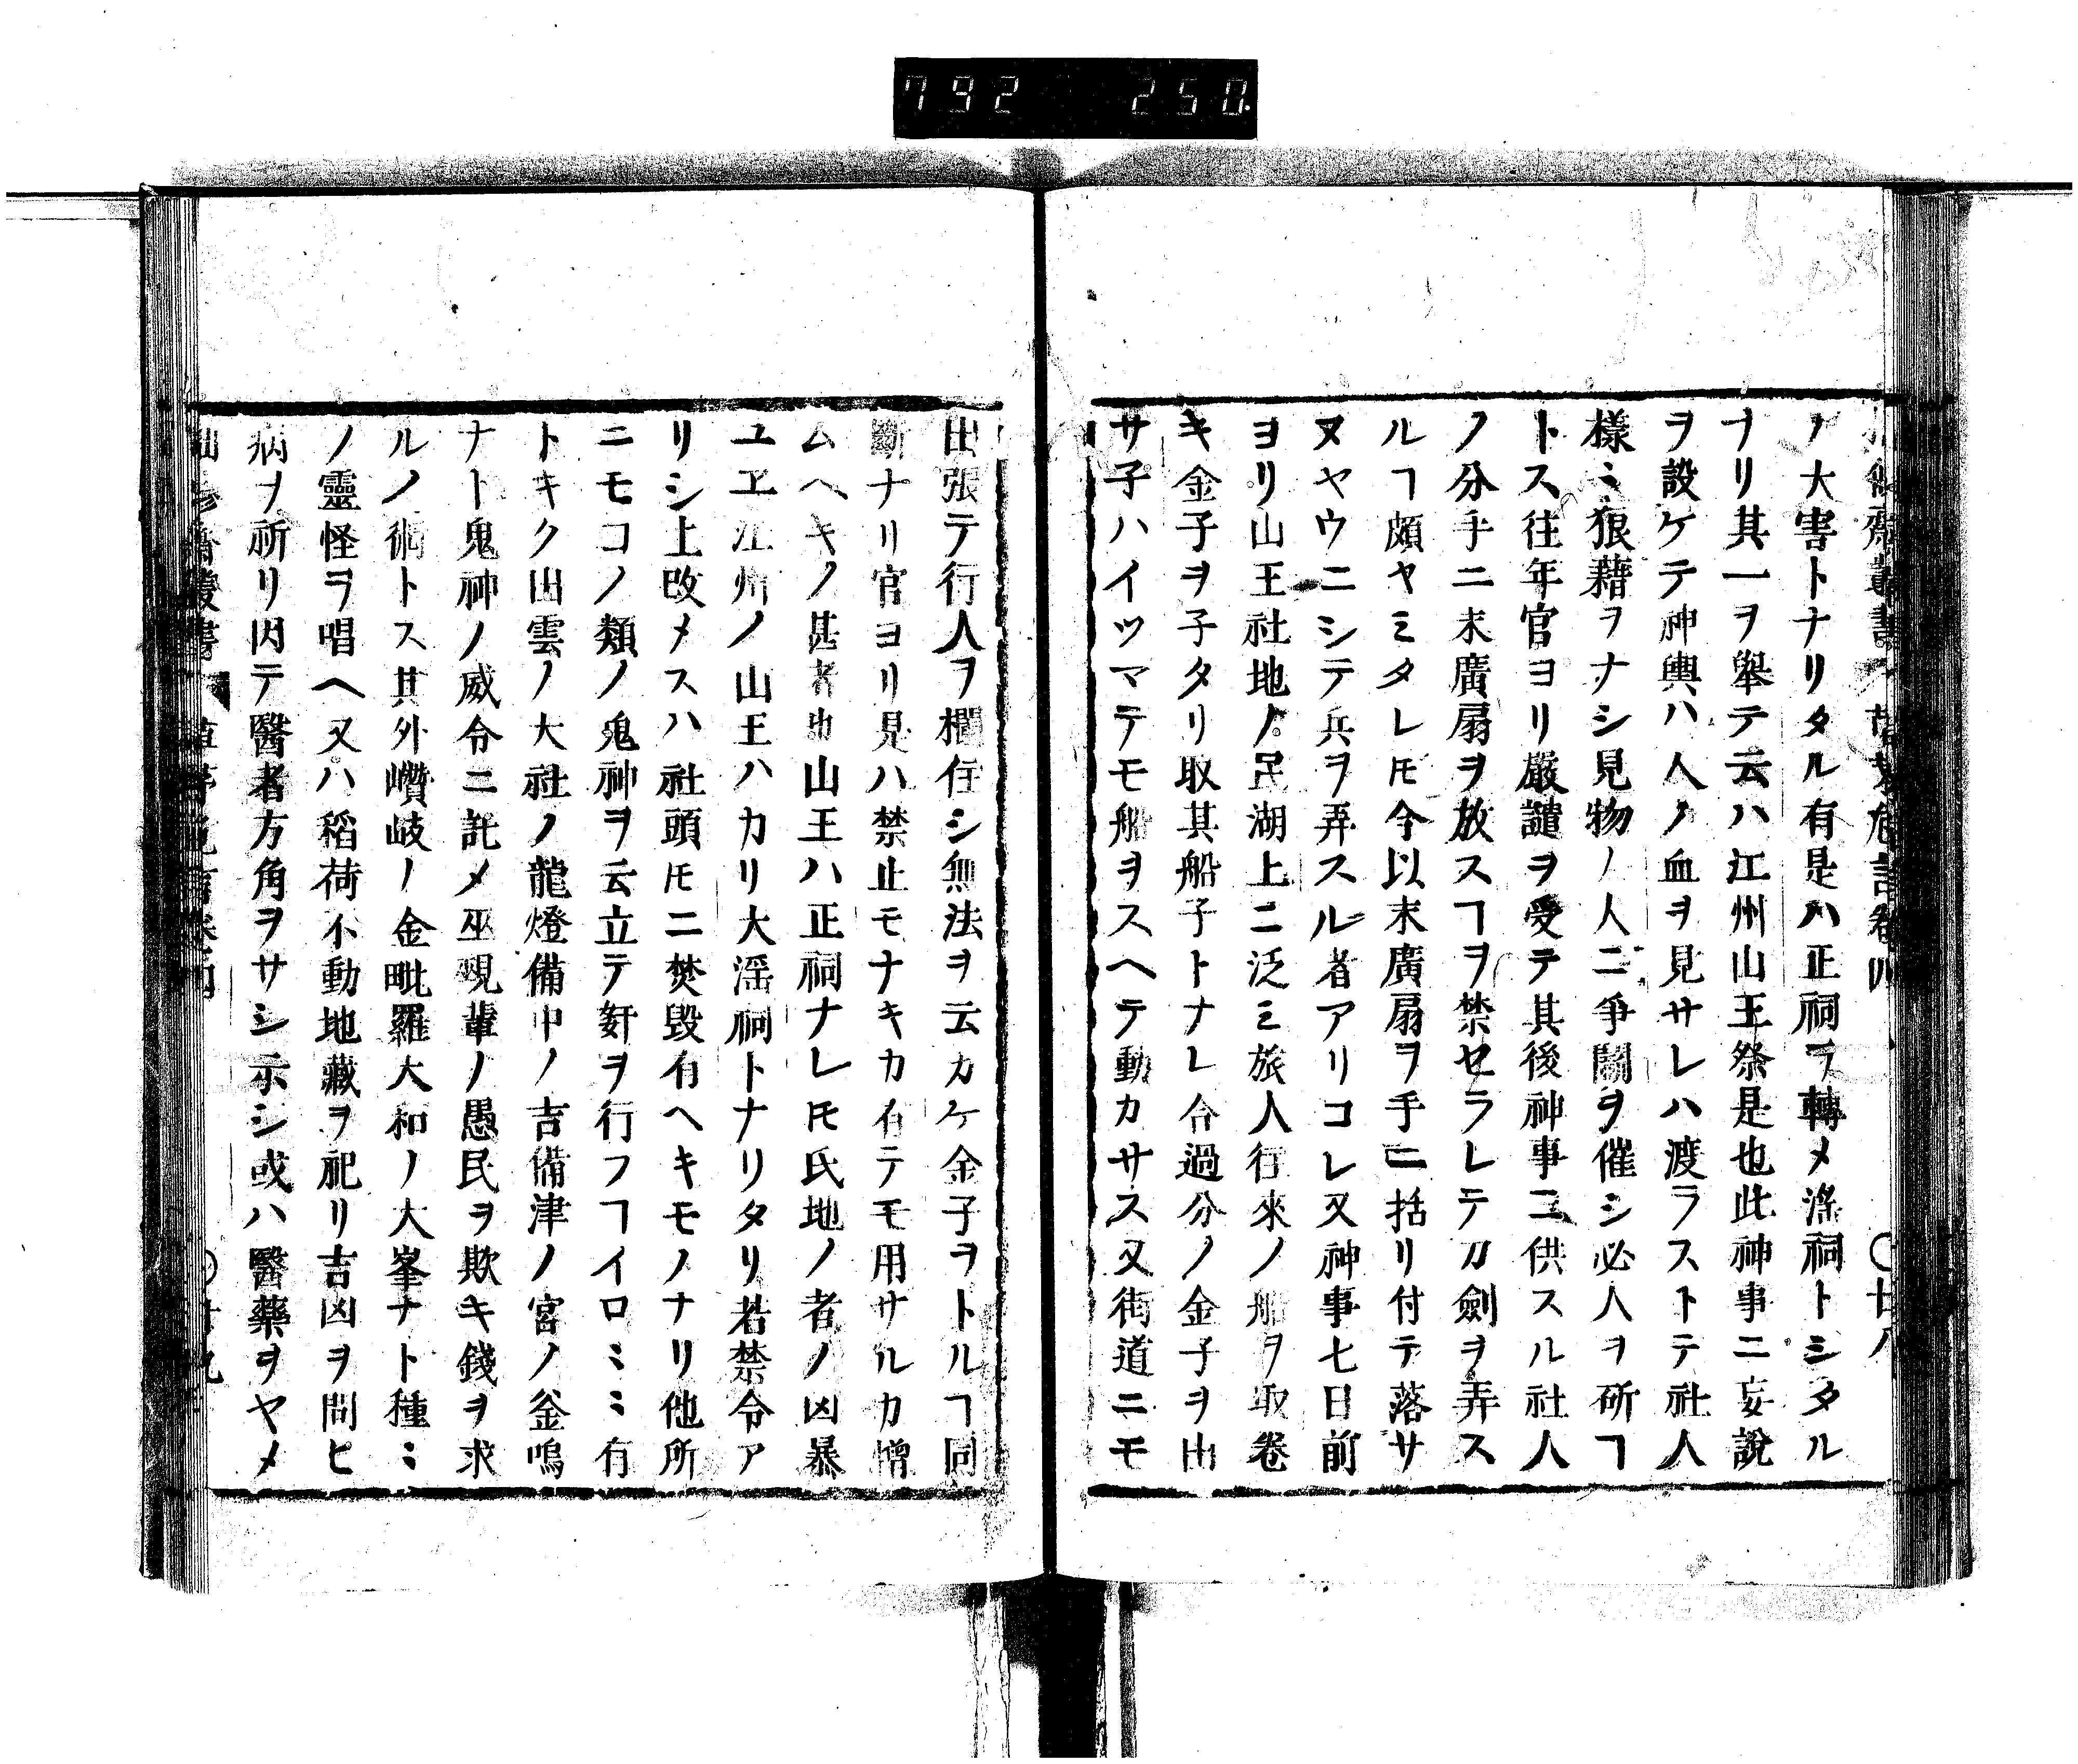 792 250.
ノ大害トナリタル有是ハ正祠ヲ轉メ淫祠トシタル
ナリ其一ヲ舉テ云ハ江州山王祭是也此神事ニ妄說
ヲ設ケテ神輿ハ人ノ血ヲ見サレハ渡ラストテ社人
樣ミ狼藉ヲナシ見物ノ人ニ爭鬪ヲ催シ必人ヲ斫ヿ
トス往年官ヨリ嚴譴ヲ受テ其後神事ニ供スル社人
ノ分手ニ末廣扇ヲ放スヿヲ禁セラレテ刀劍ヲ弄ス
ルヿ頗ヤミタレ𪜈今以末廣扇ヲ手ニ括リ付テ落サ
ヌヤウニシテ兵ヲ弄スル者アリコレ又神事七日前
ヨリ山王社地ノ民湖上ニ泛ミ旅人行來ノ船ヲ取卷
キ金子ヲ子タリ取其船子トナレ合過分ノ金子ヲ出
サ子ハイツマテモ船ヲスヘテ動カサス又街道ニモ
出張テ行人ヲ欄住シ無法ヲ云カケ金子ヲトルヿ同
斷ナリ官ヨリ見ハ禁止モナキカ有テモ用サルカ憎
ムヘキノ甚者也山王ハ正祠ナレ𪜈氏地ノ者ノ凶暴
ユヱ江州ノ山王ハカリ大淫祠トナリタリ若禁令ア
リシ上改メスハ社頭𪜈ニ焚毀有ヘキモノナリ他所
ニモコノ類ノ鬼神ヲ云立テ姧ヲ行フヿイロミミ有
トキク出雲ノ大社ノ龍燈備中ノ吉備津ノ宮ノ釜鳴
ナト鬼神ノ威令ニ託メ巫覡輩ノ愚民ヲ欺キ錢ヲ求
ルノ術トス其外巑岐ノ金毗羅大和ノ大峯ナト種ミ
ノ靈怪ヲ唱ヘ又ハ稻荷不動地藏ヲ祀リ吉凶ヲ問ヒ
病ヲ祈リ因テ醫者方角ヲサシ示シ或ハ醫藥ヲヤメ